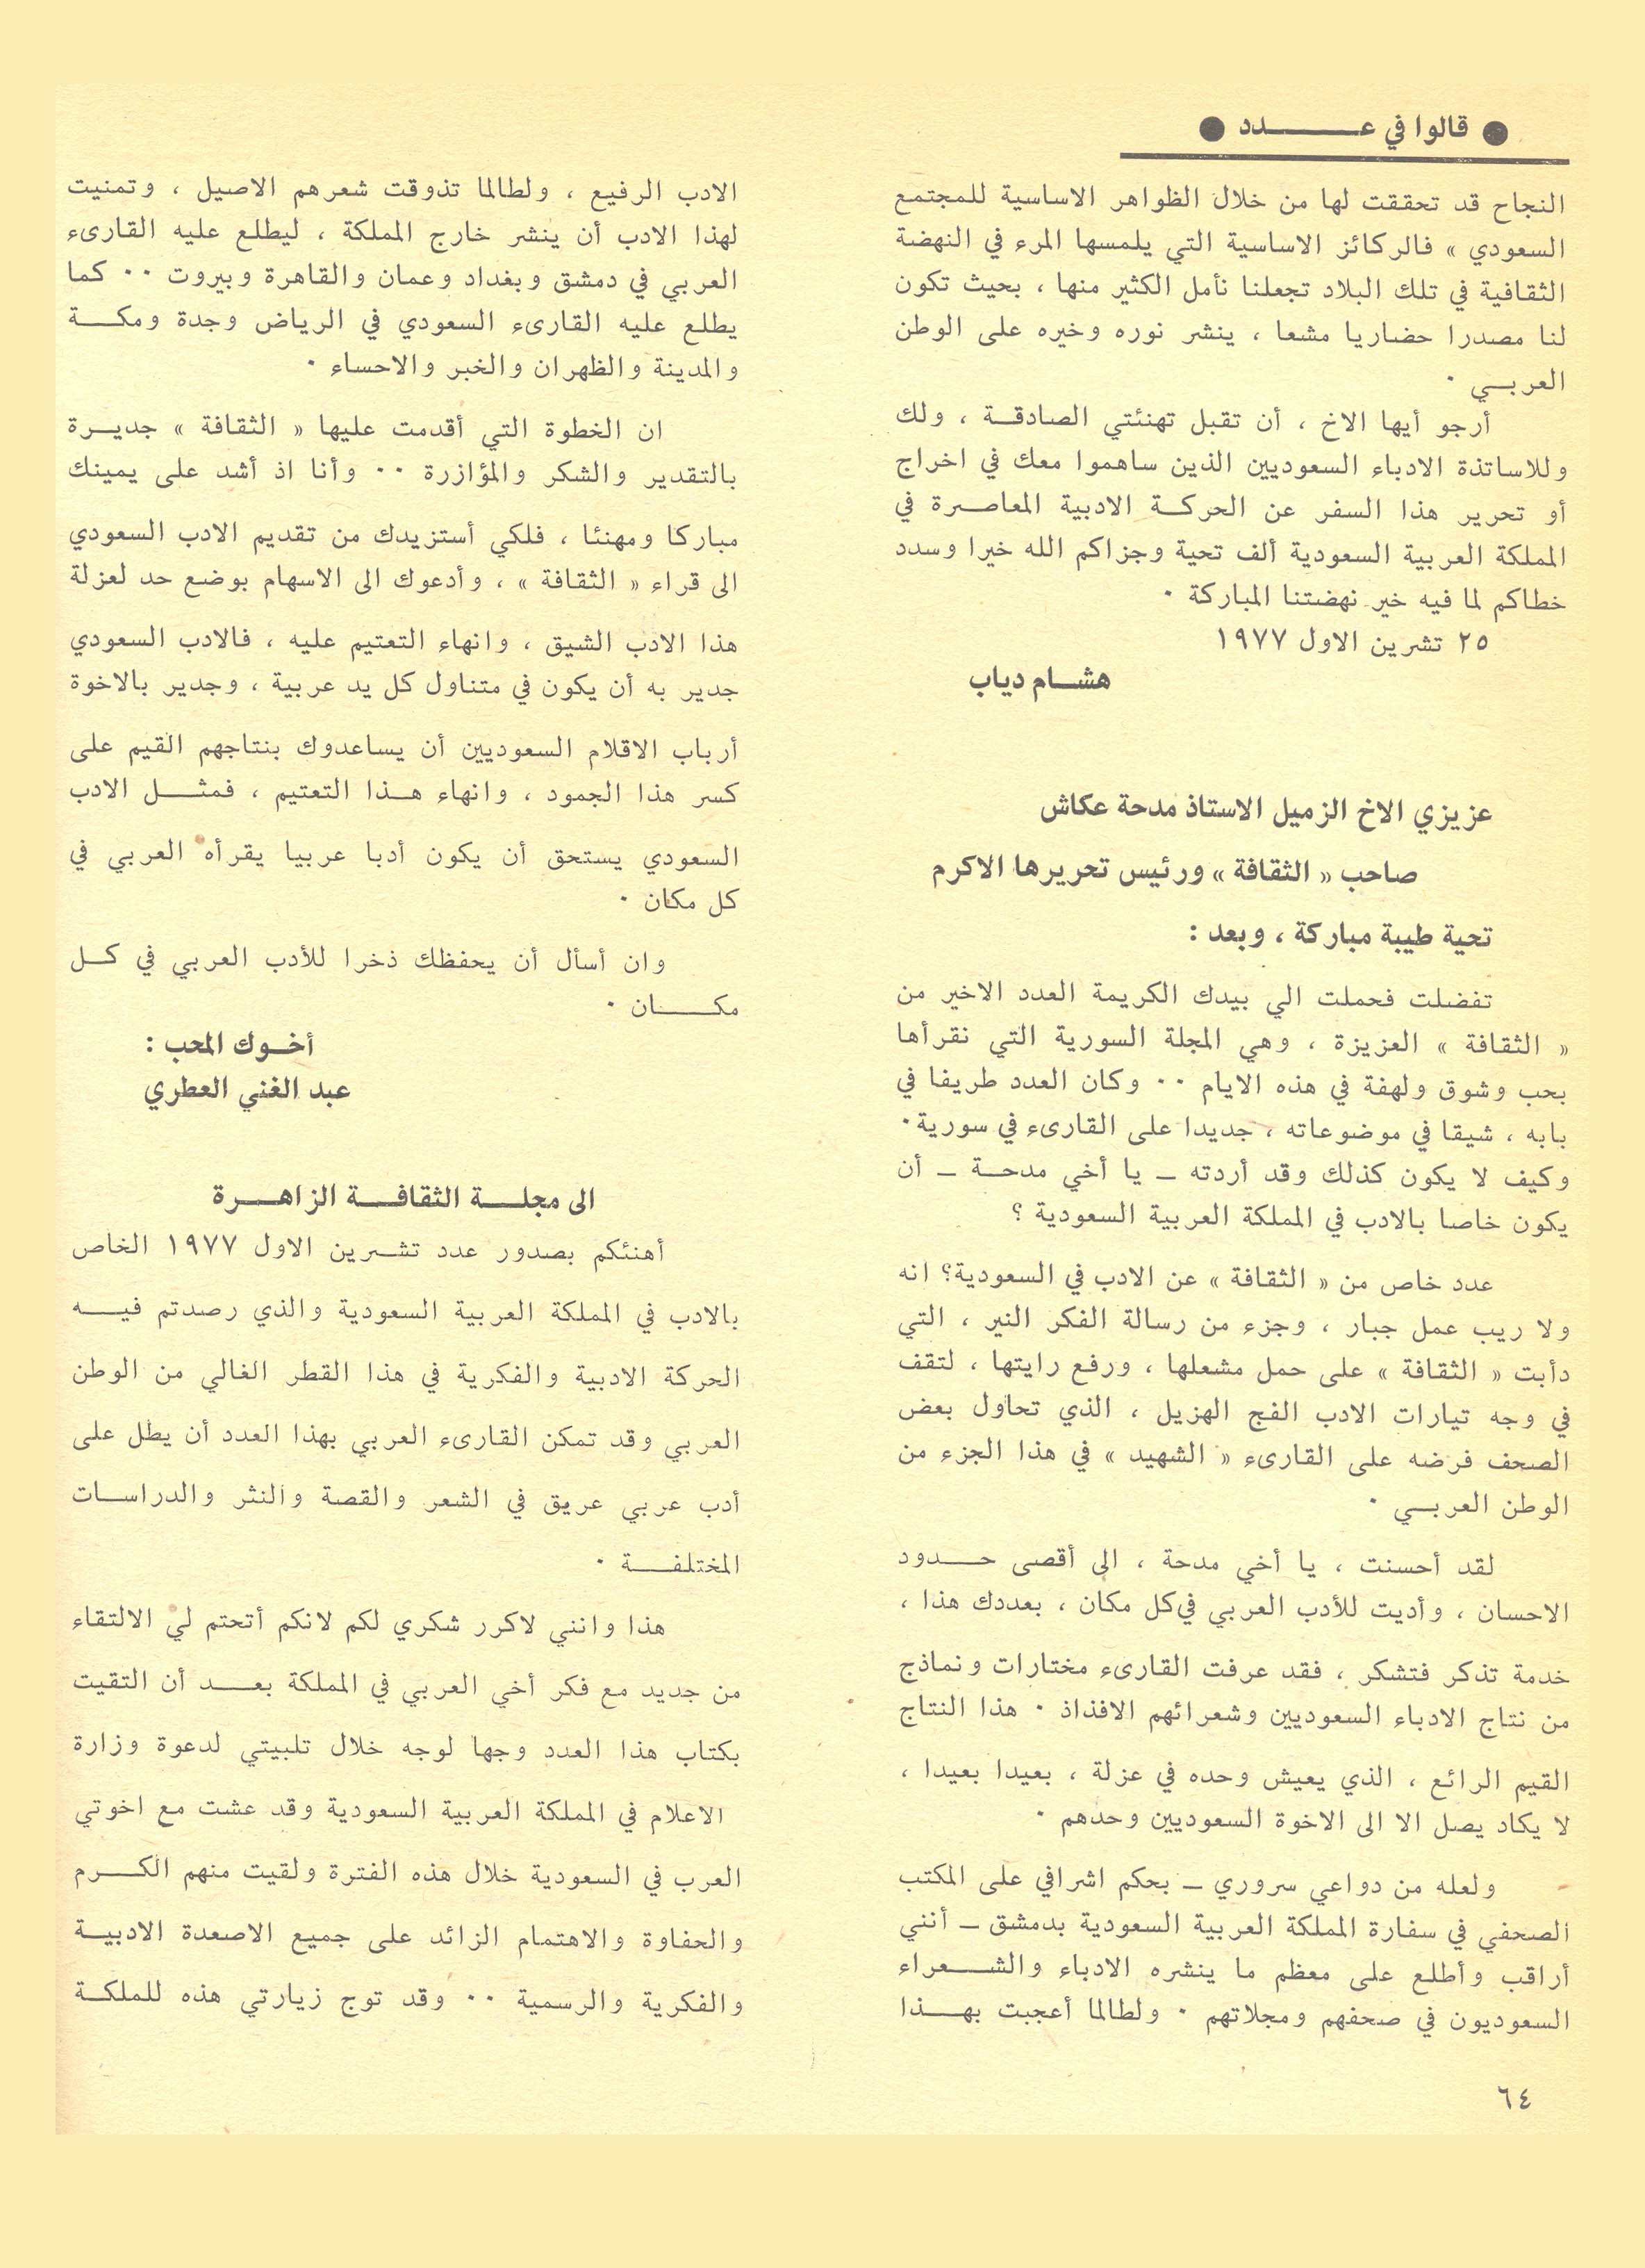 ● قالوا في عـــــدد ●
النجاح قد تحققت لها من خلال الظواهر الاساسية للمجتمع
السعودي » فالركائز الاساسية التي يلمسها المرء في النهضة
الثقافية في تلك البلاد تجعلنا نأمل الكثير منها ، بحيث تكون
لنا مصدرا حضاريا مشعا ، ينشر نوره وخيره على الوطن
العربـي ٠
أرجو أيها الاخ ، أن تقبل تهنئتي الصادقـة ، ولك
وللاساتذة الادباء السعوديين الذين ساهموا معك في اخراج
أو تحرير هذا السفر عن الحركـة الادبية المعاصـرة في
المملكة العربية السعودية ألف تحية وجزاكم الله خيرا وسدد
خطاكم لما فيه خير نهضتنا المباركة ٠
٢٥ تشرين الاول ١٩٧٧
هشـــام دياب
عزيزي الاخ الزميل الاستاذ مدحة عكاش
صاحب « الثقافة » ورئيس تحريرها الاكرم
تحية طيبة مباركة ، وبعد :
تفضلت فحملت الي بيدك الكريمة العدد الاخير من
« الثقافة » العزيزة ، وهي المجلة السورية التي نقرأها
بحب وشوق ولهفة في هذه الايام ٠٠ وكان العدد طريفا في
بابه ، شيقا في موضوعاته ، جديدا على القارىء في سورية٠
وكيف لا يكون كذلك وقد أردته ـ يا أخي مدحـة ـ أن
يكون خاصا بالادب في المملكة العربية السعودية ؟
عدد خاص من « الثقافة » عن الادب في السعودية؟ انه
ولا ريب عمل جبار ، وجزء من رسالة الفكر النير ، التي
دأبت « الثقافة » على حمل مشعلها ، ورفع رايتها ، لتقف
في وجه تيارات الادب الفج الهزيل ، الذي تحاول بعض
الصحف فرضه على القارىء « الشهيد » في هذا الجزء من
الوطن العربـي ٠
لقد أحسنت ، يا أخي مدحة ، الى أقصى حــدود
الاحسان ، وأديت للأدب العربي في كل مكان ، بعددك هذا ،
خدمة تذكر فتشكر ، فقد عرفت القارىء مختارات ونماذج
من نتاج الادباء السعوديين وشعرائهم الافذاذ ٠ هذا النتاج
القيم الرائع ، الذي يعيش وحده في عزلة ، بعيدا بعيدا ،
لا يكاد يصل الا الى الاخوة السعوديين وحدهم ٠
ولعله من دواعي سروري ـ بحكم اشرافي على المكتب
الصحفي في سفارة المملكة العربية السعودية بدمشق ـ أنني
أراقب وأطلع على معظم ما ينشره الادباء والشــعراء
السعوديون في صحفهم ومجلاتهم ٠ ولطالما أعجبت بهـــذا
٦٤
الادب الرفيع ، ولطالما تذوقت شعرهم الاصيل ، وتمنيت
لهذا الادب أن ينشر خارج المملكة ، ليطلع عليه القارىء
العربي في دمشق وبغداد وعمان والقاهرة وبيروت ٠٠ كما
يطلع عليه القارىء السعودي في الرياض وجدة ومكـــة
والمدينة والظهران والخبر والاحساء ٠
ان الخطوة التي أقدمت عليها « الثقافة » جديـرة
بالتقدير والشكر والمؤازرة ٠٠ وأنا اذ أشد على يمينك
مباركا ومهنئا ، فلكي أستزيدك من تقديم الادب السعودي
الى قراء « الثقافة » ، وأدعوك الى الاسهام بوضع حد لعزلة
هذا الادب الشيق ، وانهاء التعتيم عليه ، فالادب السعودي
جدير به أن يكون في متناول كل يد عربية ، وجدير بالاخوة
أرباب الاقلام السعوديين أن يساعدوك بنتاجهم القيم على
كسر هذا الجمود ، وانهاء هـذا التعتيم ، فمثــل الادب
السعودي يستحق أن يكون أدبا عربيا يقرأه العربي في
كل مكان ٠
وان أسأل أن يحفظك ذخرا للأدب العربي في كــل
مكــــان ٠
أخـوك المحب :
عبد الغني العطري
الى مجلـــة الثقافـــة الزاهـــرة
أهنئكم بصدور عدد تشـرين الاول ١٩٧٧ الخاص
بالادب في المملكة العربية السعودية والذي رصدتم فيــه
الحركة الادبية والفكرية في هذا القطر الغالي من الوطن
العربي وقد تمكن القارىء العربي بهذا العدد أن يطل على
أدب عربي عريق في الشعر والقصة والنثر والدراسـات
المختلفـــة ٠
هذا وانني لاكرر شكري لكم لانكم أتحتم لي الالتقاء
من جديد مع فكر أخي العربي في المملكة بعــد أن التقيت
بكتاب هذا العدد وجها لوجه خلال تلبيتي لدعوة وزارة
الاعلام في المملكة العربية السعودية وقد عشت مع اخوتي
العرب في السعودية خلال هذه الفترة ولقيت منهم الكـــرم
والحفاوة والاهتمام الزائد على جميع الاصعدة الادبيــة
والفكرية والرسمية ٠٠ وقد توج زيارتي هذه للملكــة